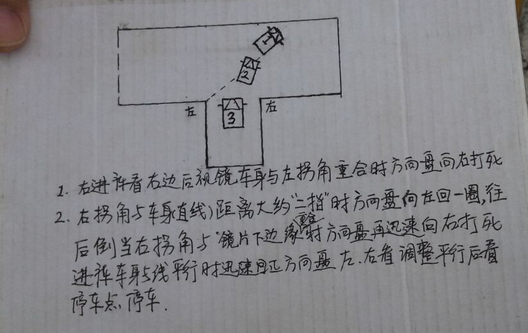 1
2
左 3 右
1. 右进库看右边后视镜车身与左拐角重合时方向盘向右打死
2. 右拐角与车身(直线)距离大约"二拃"时方向盘向左回一圈,往
后倒当右拐角与"镜片下边缘"时方向盘再迅速向右打死
进库车身与线平行时迅速回正方向盘 左.右看调整平行后看
停车点停车.